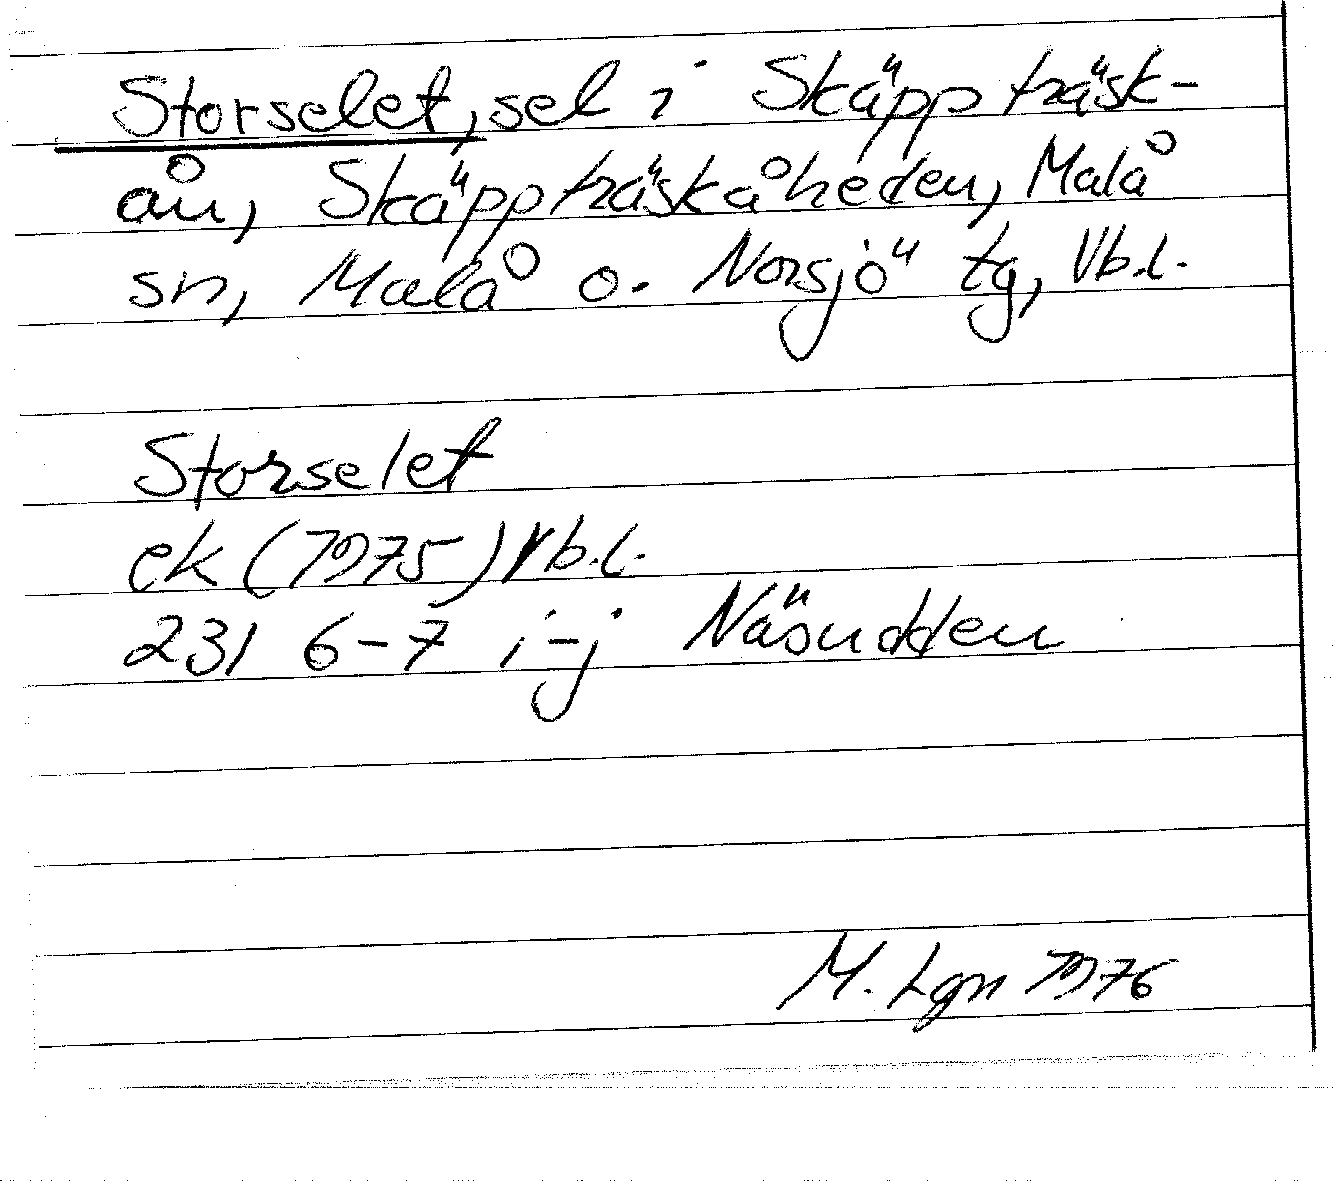 Storselet, sel i Skäppträsk-
ån, Skäppträskåheden, Malå
sn, Malå o. Norsjö tg, Vb.l.
Storselet
ek (1975) Vb.l.
23I 6-7 i-j Näsudden
M. Lgn 1976